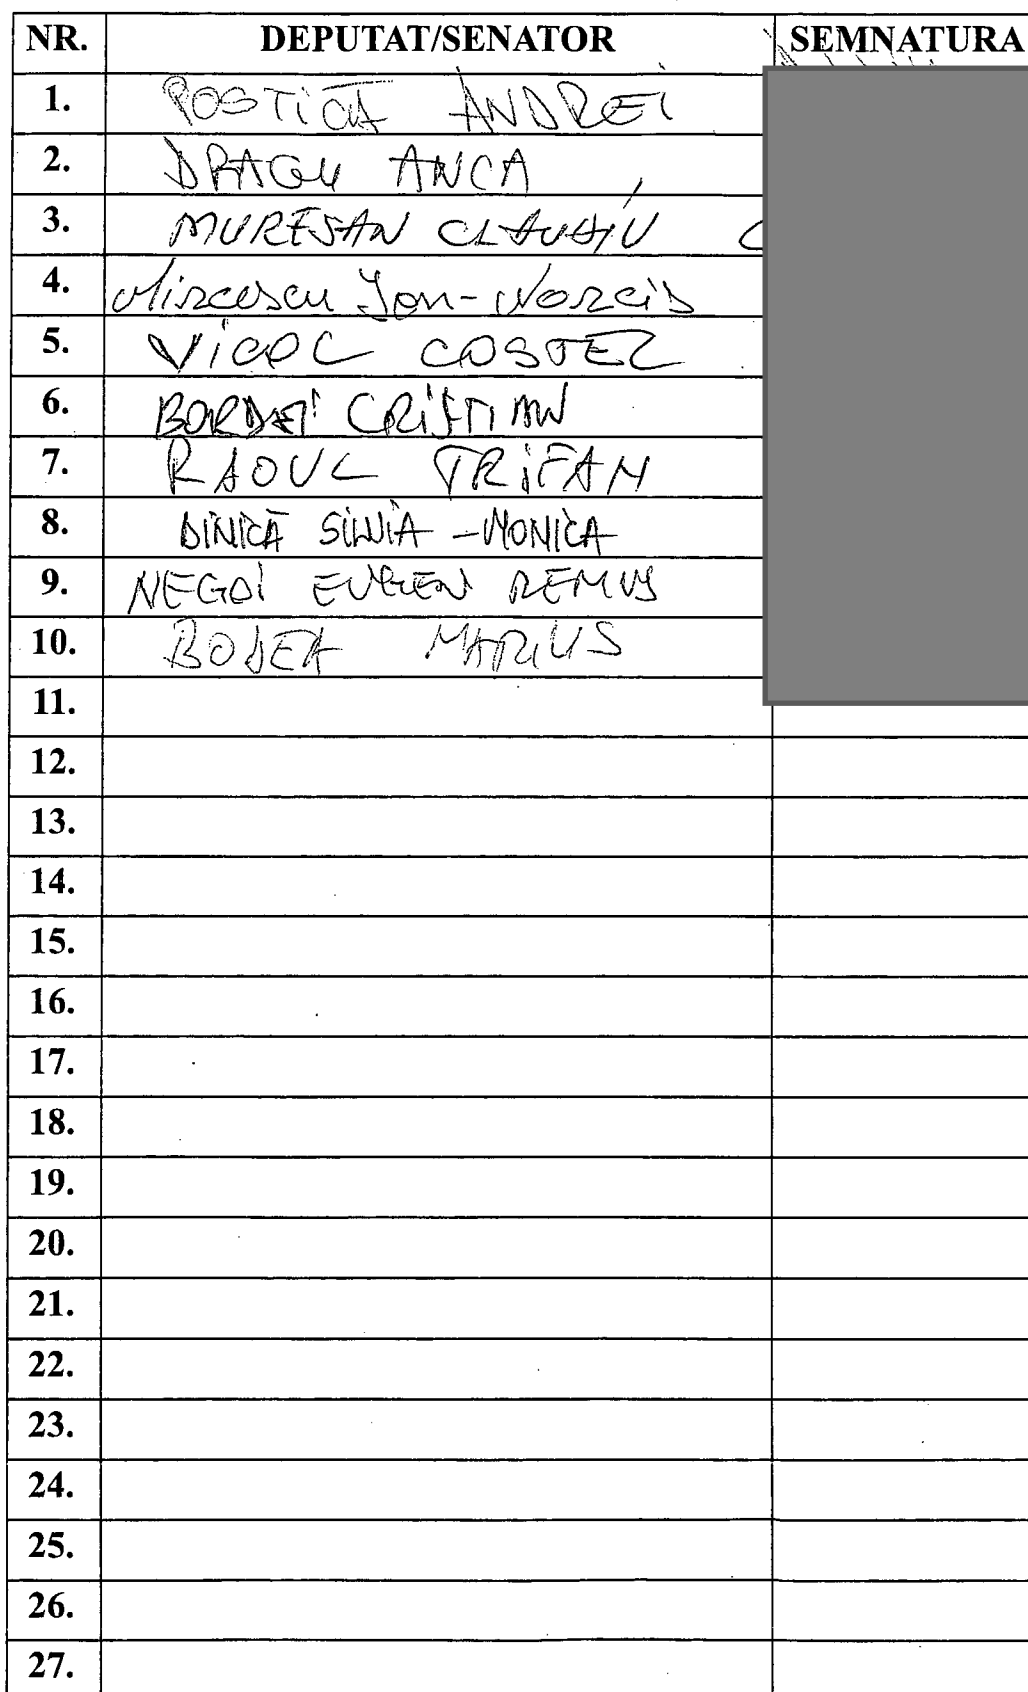 NR. DEPUTAT/SENATOR SEMNATURA
1. POSTICĂ ANDREI
2. DRAGU ANCA
3. MURESAN CLAUDIU C
4. Mircescu Ion-Narcis
5. VICOL COSTEL
6. BORDEI CRISTIAN
7. RAOUL TRIFAN
8. DINICĂ SILVIA-MONICA
9. NEGOI EUGEN REMUS
10. BODEA MARIUS
11.
12.
13.
14.
15.
16.
17.
18.
19.
20.
21.
22.
23.
24.
25.
26.
27.